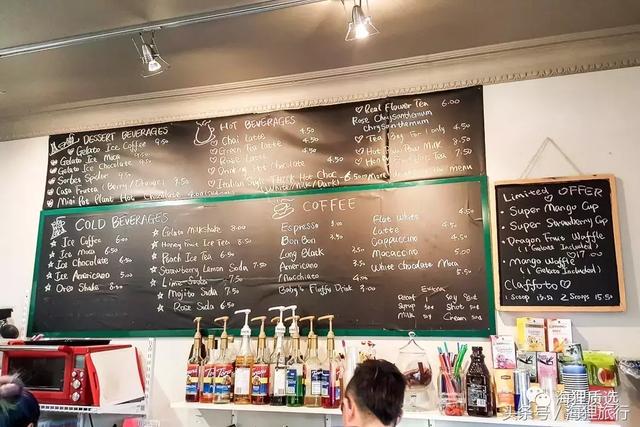 DESSERT BEVERAGES
Gelato Ice Coffee 9.50
Gelato Ice Moca 9.50
Gelato Ice Chocolate 9.50
Sorbet Spider 9.50
Casa Frutta (Berry/Orange) 9.50
Mini Pot Plant Hot Chocolate
HOT BEVERAGES
Chai Latte 4.50
Green Tea Latte 4.50
Rose Latte
Drinking Hot Chocolate 4.50
Italian Style Thick Hot Choc 6.50
(White/Milk/Dark)
Real Flower Tea 6.00
Rose Chrysanthemum
Chrysanthemum
Tea Bag For 1 only 4.50
Hot Milk 5.50
Tea 5.50
COLD BEVERAGES
Ice Coffee 6.00
Ice Moca 6.50
Ice Chocolate 6.50
Ice Americano 5.00
Oreo Shake 8.00
Gelato Milkshake 8.00
Honey fruit Ice Tea 8.50
Peach Ice Tea 6.50
Strawberry Lemon Soda 7.50
Lime Soda
Mojito Soda 7.50
Rose Soda 6.50
COFFEE
Espresso 3.00
Bon Bon 3.50
Long Black 3.50
Americano 3.50
Macchiato 4.00
Baby's Fluffy Drink 3.00
Flat White 4.50
Latte 4.50
Cappuccino 4.50
Mocaccino 5.00
White Chocolate Moca 5.50
Extra
Decaf 1 Soy 50c
Syrup 50c Shot 50c
Milk 50c Cream 50c
LIMITED OFFER
Super Mango Cup
Super Strawberry Cup
Dragon Fruit Waffle
(1 Gelato Included)
17.00
Mango Waffle
(1 Gelato Included)
Claffoto
1 Scoop 13.50 2 Scoops 15.50
海狸质选
头条@海狸旅行